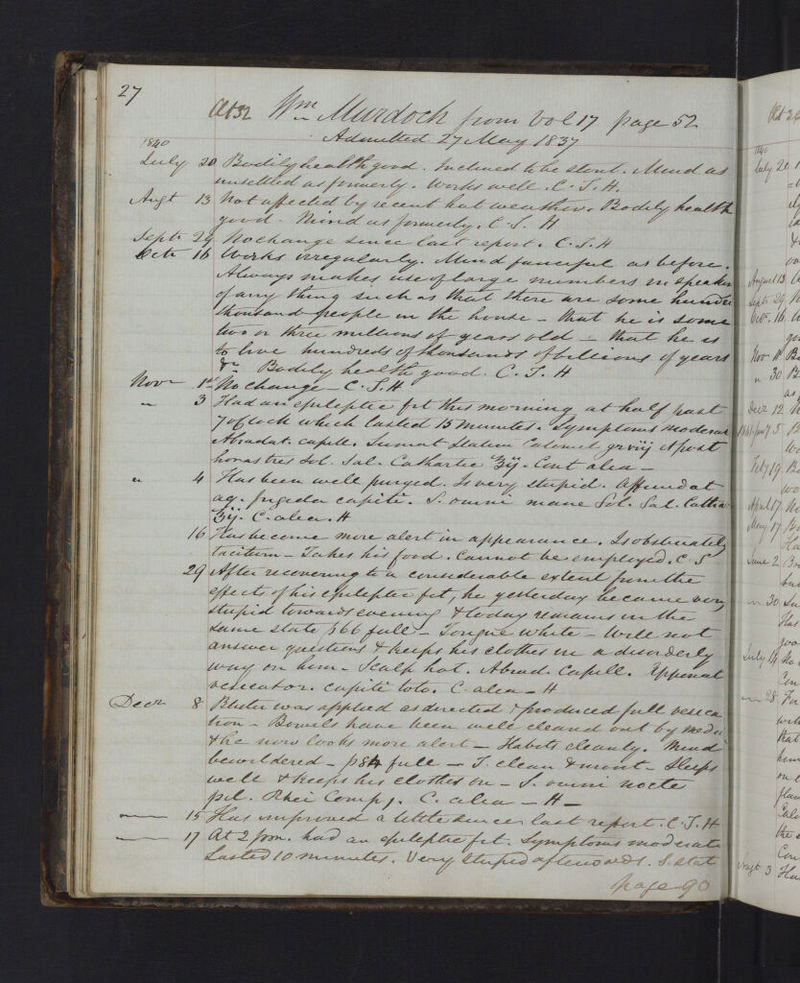 27
Aet 32 Wm Murdoch from Vol 17 page 52
Admitted 27 May 1837
1840
July 20 Bodily health good. Inclined to be stout. Mind as
unsettled as formerly. Works well. C. T. H.
Augt 13 Not affected by recent hot weather. Bodily health
good. Mind as formerly. C. T. H
Septr 29 No change since last report. C. T. H
Octr 16 Works irregularly. Mind fanciful as before.
Always makes use of large numbers in speakin
of any thing such as that there are some hundre
thousand people in the house - that he is some
two or three millions of years old - that he is
to live hundreds of thousands of billions of years
&c Bodily health good. C. T. H
Novr 1st No change - C. T. H
" 3 Had an epileptic fit this morning at half past
7 oclock which lasted 15 minutes. Symptoms moderate
Abradat. capill. Sumat statim Calomel gr viij & post
horas tres Sol. Sal. Cathartic ℥ij. Cont alia -
" 4 Has been well purged. Is very stupid. Affundat
aq. frigida capiti. S. omni mane Sol. Sal. Cathar
℥ij. C. alia. H
16 Has become more alert in appearance. Is obstinately
taciturn - Takes his food. Cannot be employed. C. T
29 After recovering to a considerable extent from the
effects of his epileptic fit, he yesterday became very
stupid towards evening & today remains in the
same state p 66 full - Tongue white - Will not
answer questions & keeps his clothes in a disorderly
way on him - Scalp hot. Abrad. Capill. Apponat
vesicator. capiti toto. C. alia - H
Decr 8 Blister was applied as directed & produced full vesica
tion - Bowels have been well cleared out by medic
& he now looks more alert - Habits cleanly. Mind
bewildered - p 84 full - T. clean & moist - Sleeps
well & keeps his clothes on - S. omni nocte
pil. Rhei Comp 1. C. alia - H -
15 Has improved a little since last report. C. T. H
17 At 2 p.m. had an epileptic fit. Symptoms moderate
Lasted 10 minutes. Very stupid afterwards. S. stat
page 90
Aet 24
1840
July 20
August 13
Septr 29
Octr 16
Novr
" 30
Decr 12
Feby 19
April 17
May 17
June 2
" 30
July 14
" 28
Augt 3